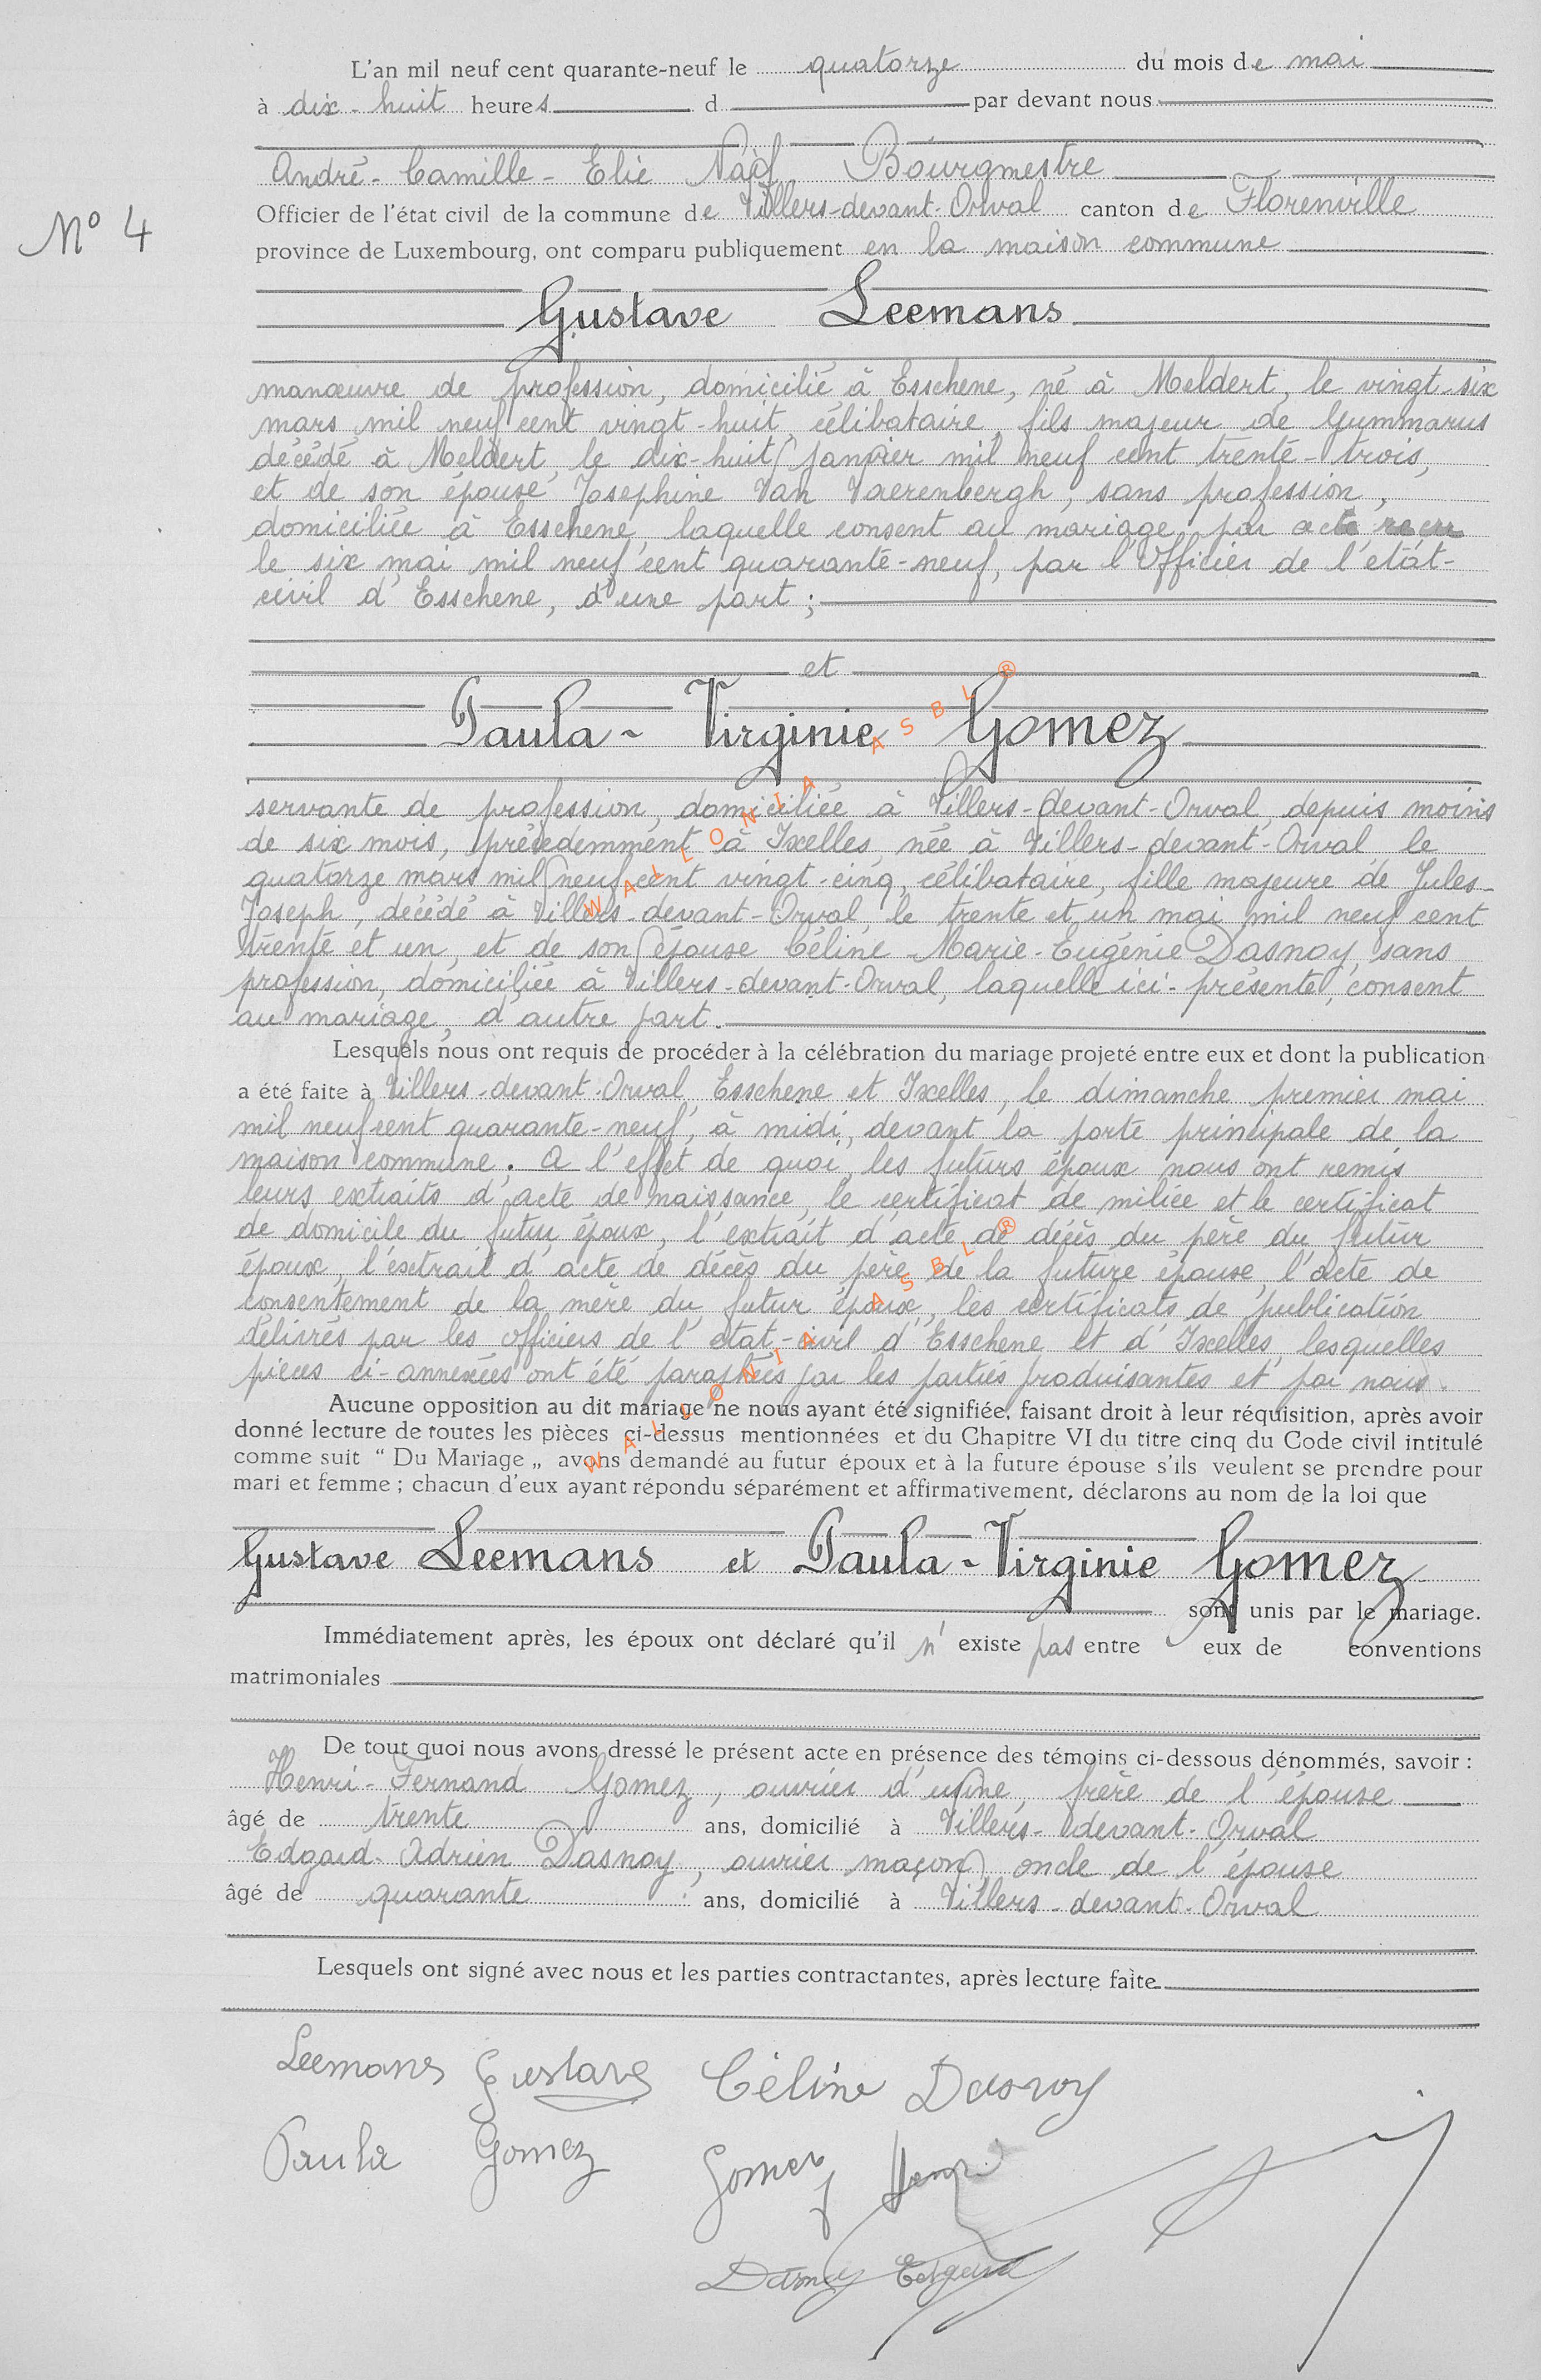 L'an mil neuf cent quarante-neuf le quatorze du mois de mai
à dix-huit heures d par devant nous
André-Camille-Elie Bourgmestre
N° 4
Officier de l'état civil de la commune de Villers-devant-Orval canton de Florenville
province de Luxembourg, ont comparu publiquement en la maison commune
Gustave Leemans
manœuvre de profession, domicilié à Esschene, né à Meldert, le vingt-six
mars mil neuf cent vingt-huit, célibataire, fils majeur de Gummarus
décédé à Meldert, le dix-huit janvier mil neuf cent trente-trois,
et de son épouse Josephine Van Vaerenbergh, sans profession,
domiciliée à Esschene, laquelle consent au mariage par acte reçu
le six mai mil neuf cent quarante-neuf, par l'Officier de l'état-
civil d'Esschene, d'une part ;
et
Paula-Virginie Gomez
servante de profession, domiciliée à Villers-devant-Orval, depuis moins
de six mois, précedemment à Ixelles, née à Villers-devant-Orval le
quatorze mars mil neuf cent vingt-cinq, célibataire, fille majeure de Jules-
Joseph, décédé à Villers-devant-Orval, le trente et un mai mil neuf cent
trente et un, et de son épouse Céline-Marie-Eugénie Dasnoy, sans
profession, domiciliée à Villers-devant-Orval, laquelle ici-présente, consent
au mariage, d'autre part.
Lesquels nous ont requis de procéder à la célébration du mariage projeté entre eux et dont la publication
a été faite à Villers-devant-Orval, Esschene et Ixelles, le dimanche premier mai
mil neuf cent quarante-neuf, à midi, devant la porte principale de la
maison commune. A l'effet de quoi, les futurs époux nous ont remis
leurs extraits d'acte de naissance, le certificat de milice et le certificat
de domicile du futur époux, l'extrait d'acte de décès du père du futur
époux, l'extrait d'acte de décès du père de la future épouse, l'acte de
consentement de la mère du futur époux, les certificats de publication
délivrés par les officiers de l'état-civil d'Esschene et d'Ixelles, lesquelles
pièces ci-annexées ont été paraphées par les parties produisantes et par nous.
Aucune opposition au dit mariage ne nous ayant été signifiée, faisant droit à leur réquisition, après avoir
donné lecture de toutes les pièces ci-dessus mentionnées et du Chapitre VI du titre cinq du Code civil intitulé
comme suit “ Du Mariage „ avons demandé au futur époux et à la future épouse s'ils veulent se prendre pour
mari et femme ; chacun d'eux ayant répondu séparément et affirmativement, déclarons au nom de la loi que
Gustave Leemans et Paula-Virginie Gomez
sont unis par le mariage.
Immédiatement après, les époux ont déclaré qu'il n'existe pas entre eux de conventions
matrimoniales
De tout quoi nous avons dressé le présent acte en présence des témoins ci-dessous dénommés, savoir :
Henri-Fernand Gomez, ouvrier d'usine, frère de l'épouse
âgé de trente ans, domicilié à Villers-devant-Orval
Edgard-Adrien Dasnoy, ouvrier maçon, oncle de l'épouse
âgé de quarante ans, domicilié à Villers-devant-Orval
Lesquels ont signé avec nous et les parties contractantes, après lecture faite
Leemans Gustave Céline Dasnoy
Paula Gomez Gomez Henri
Dasnoy Edgard
WALLONIA ASBL ®
WALLONIA ASBL ®